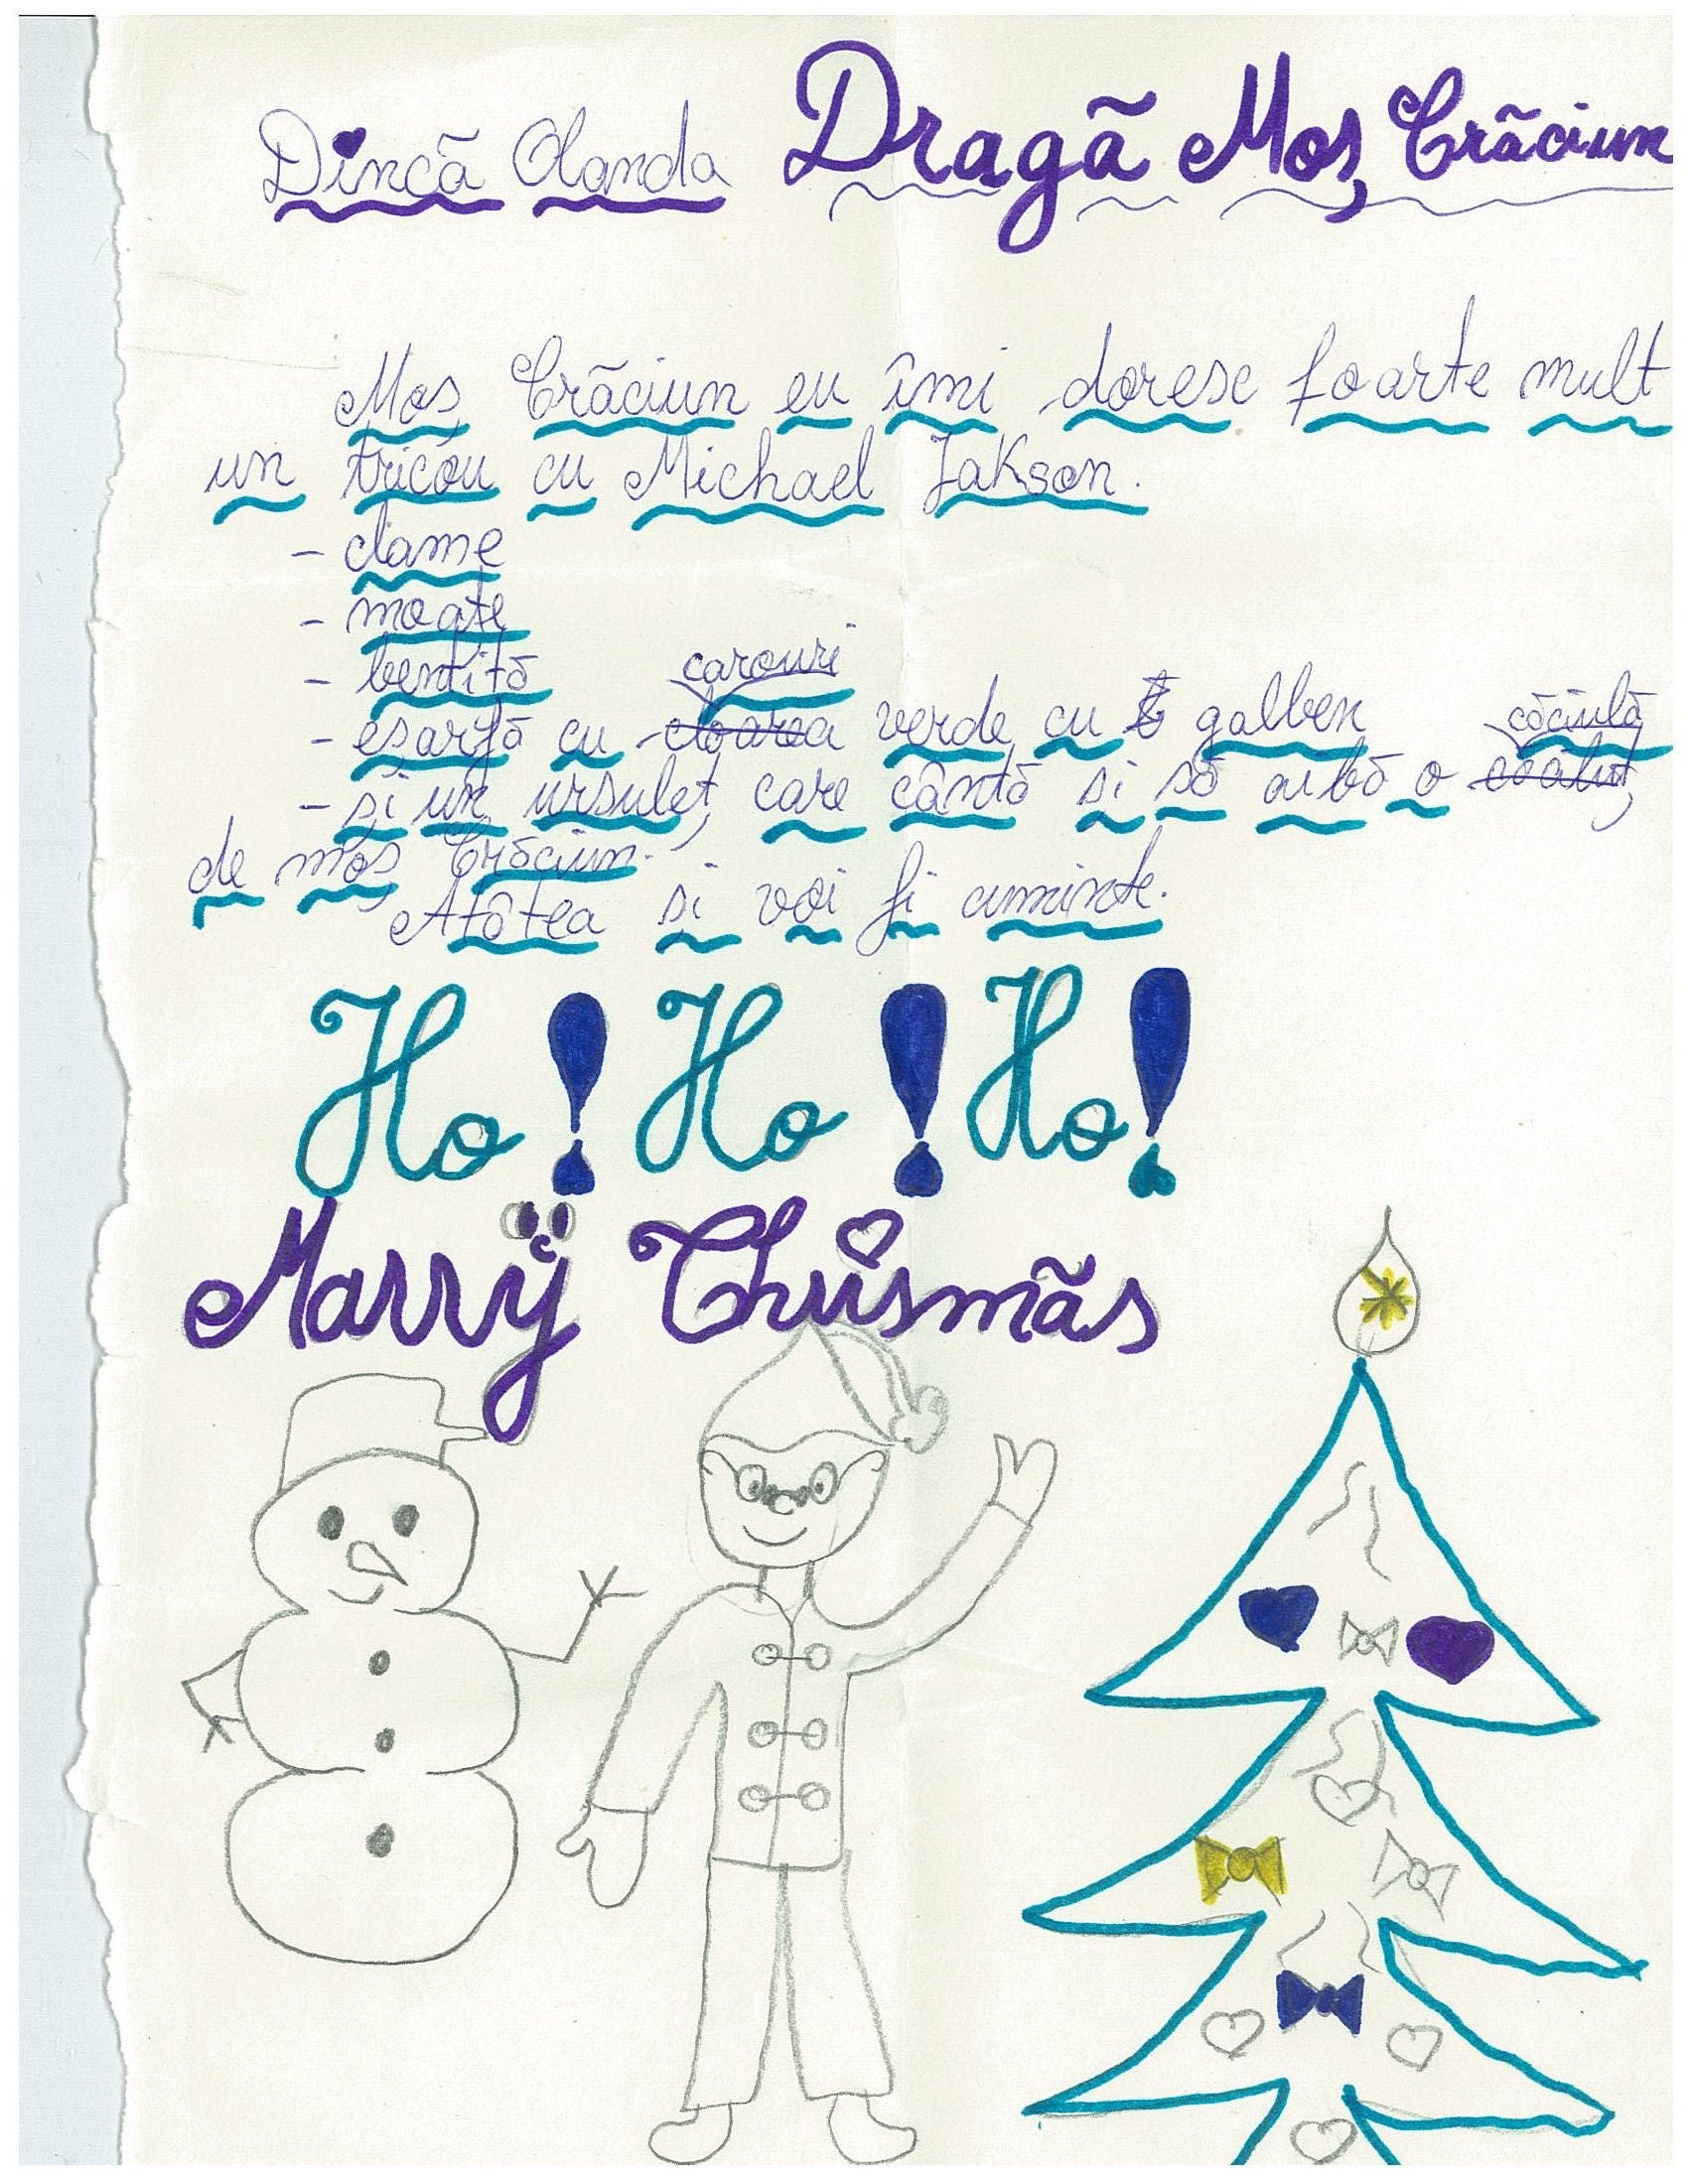 Dincã Olanda Dragã Moș Crãciun
Moș Crãciun eu îmi doresc foarte mult
un tricou cu Michael Jakson.
- clame
- moațe
- bentițã
carouri
- eșarfã cu verde cu galben
cãciulã
- și un ursuleț care cântã si sã aibã o
de moș Crãciun.
Atôtea și voi fi cuminte.
Ho! Ho! Ho!
Marry Chrismãs